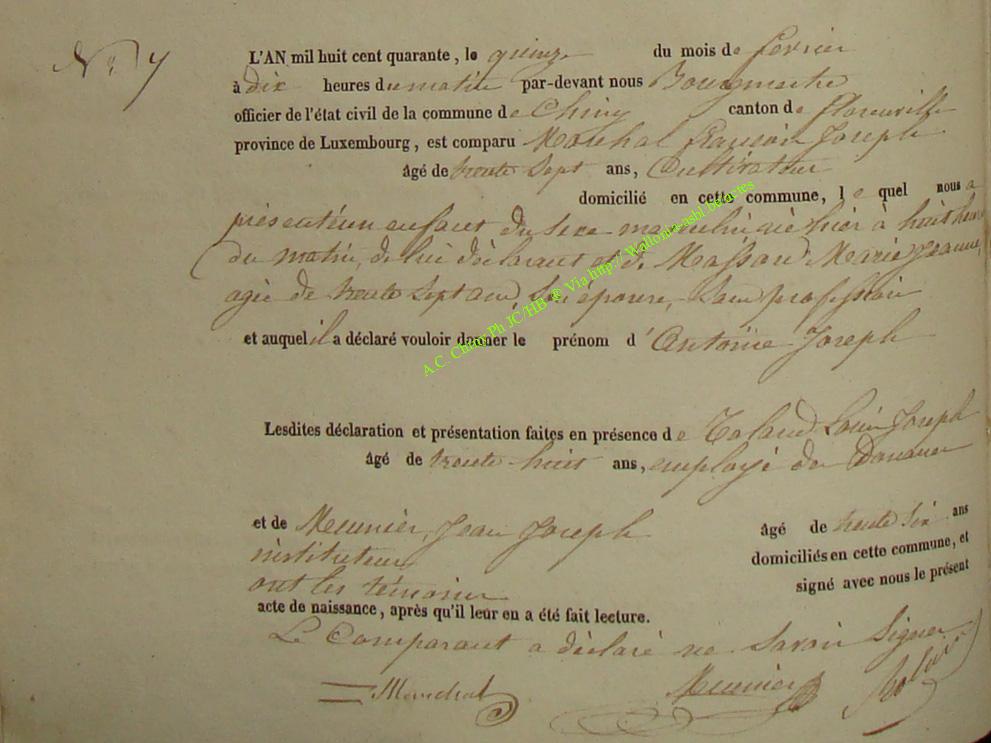 N.° 7
L'AN mil huit cent quarante, le quinze du mois de fevrier
à dix heures du matin par-devant nous Bourgmestre
officier de l'état civil de la commune de Chiny canton de florenville
province de Luxembourg, est comparu Maréchal François Joseph
âgé de trente sept ans, Cultivateur
domicilié en cette commune, le quel nous a
présenté un enfant du sexe masculin né hier à huit heures
du matin, de lui déclarant et de Massard Marie Jeanne,
agée de trente sept ans, son épouse, Sans profession
et auquel il a déclaré vouloir donner le prénom d' Antoine Joseph
Lesdites déclaration et présentation faites en présence de Louis Joseph
âgé de trente huit ans, employé des Douanes
et de Meunier, Jean Joseph âgé de trente six ans
instituteur domiciliés en cette commune, et
ont les témoins signé avec nous le présent
acte de naissance, après qu'il leur en a été fait lecture.
Le Comparant a déclaré ne Savoir Signer
Maréchal Meunier
A.C. Chiny Ph JC/HB @ Via http://Wallonia-asbl.be/actes